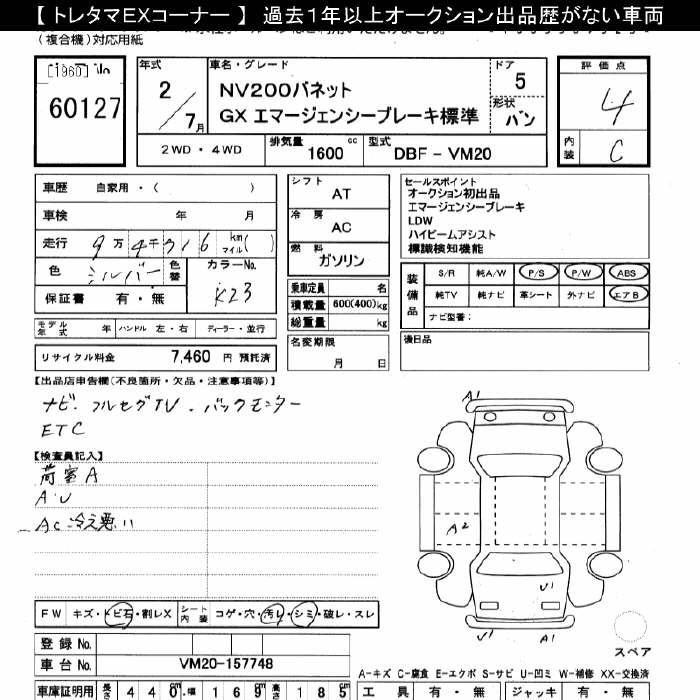 【 トレタマEXコーナー 】 過去１年以上オークション出品歴がない車両
(複合機)対応用紙
[1960]
60127
年式
2/7月
車名・グレード
NV200バネット
GX エマージェンシーブレーキ標準
ドア
5
形状
バン
評価点
4
内装
C
2WD ・ 4WD
排気量
1600 cc
型式
DBF － VM20
車歴 自家用 ・（ ）
車検 年 月
走行 9万4千316 km マイル( )
色 シルバー 色替
カラーNo.
K23
保証書 有・無
モデル年式 年 ハンドル 左・右 ディーラー・並行
リサイクル料金 7,460 円 預託済
シフト
AT
冷房
AC
燃料
ガソリン
乗車定員 名
積載量 600(400)kg
総重量 kg
名変期限
月 日
セールスポイント
オークション初出品
エマージェンシーブレーキ
LDW
ハイビームアシスト
標識検知機能
装備品
S/R 純A/W P/S P/W ABS
純TV 純ナビ 革シート 外ナビ エアB
ナビ型番：
後日品
【出品店申告欄(不良箇所・欠品・注意事項等)】
ナビ・フルセグTV・バックモニター
ETC
【検査員記入】
荷室A
A・U
AC冷え悪い
A1
A2
U1
U1
A1
スペア
FW キズ・トビ石・割レX シート内装 コゲ・穴・汚レ・シミ・破レ・スレ
登録 No.
車台 No. VM20-157748
A-キズ C-腐食 E-エクボ S-サビ U-凹ミ W-補修 XX-交換済
車庫証明用 長さ 440 cm 幅 169 cm 高さ 185 cm
工具 有・無 ジャッキ 有・無